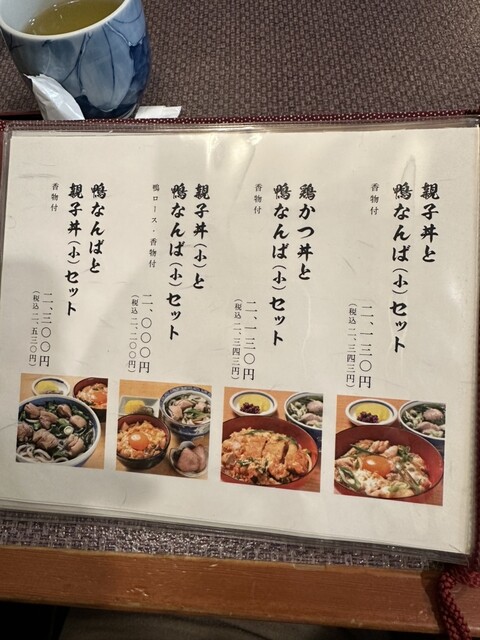 親子丼と
鴨なんば(小)セット
香物付
二、一三〇円
(税込 二、三四三円)
鶏かつ丼と
鴨なんば(小)セット
香物付
二、一三〇円
(税込 二、三四三円)
親子丼(小)と
鴨なんば(小)セット
鴨ロース・香物付
二、〇〇〇円
(税込 二、二〇〇円)
鴨なんばと
親子丼(小)セット
香物付
二、三〇〇円
(税込 二、五三〇円)